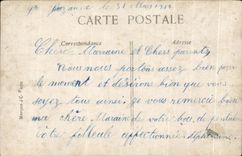 le 31 Mars 1918
CARTE POSTALE
Correspondance
Adresse
Chère Marraine et Chers parents
Nous nous portons assez bien pour
le moment et désirons bien que vous
soyez tous ainsi je vous remercie bien
ma chère Maraine de votre bon de pendule
Votre filleule affectionnée